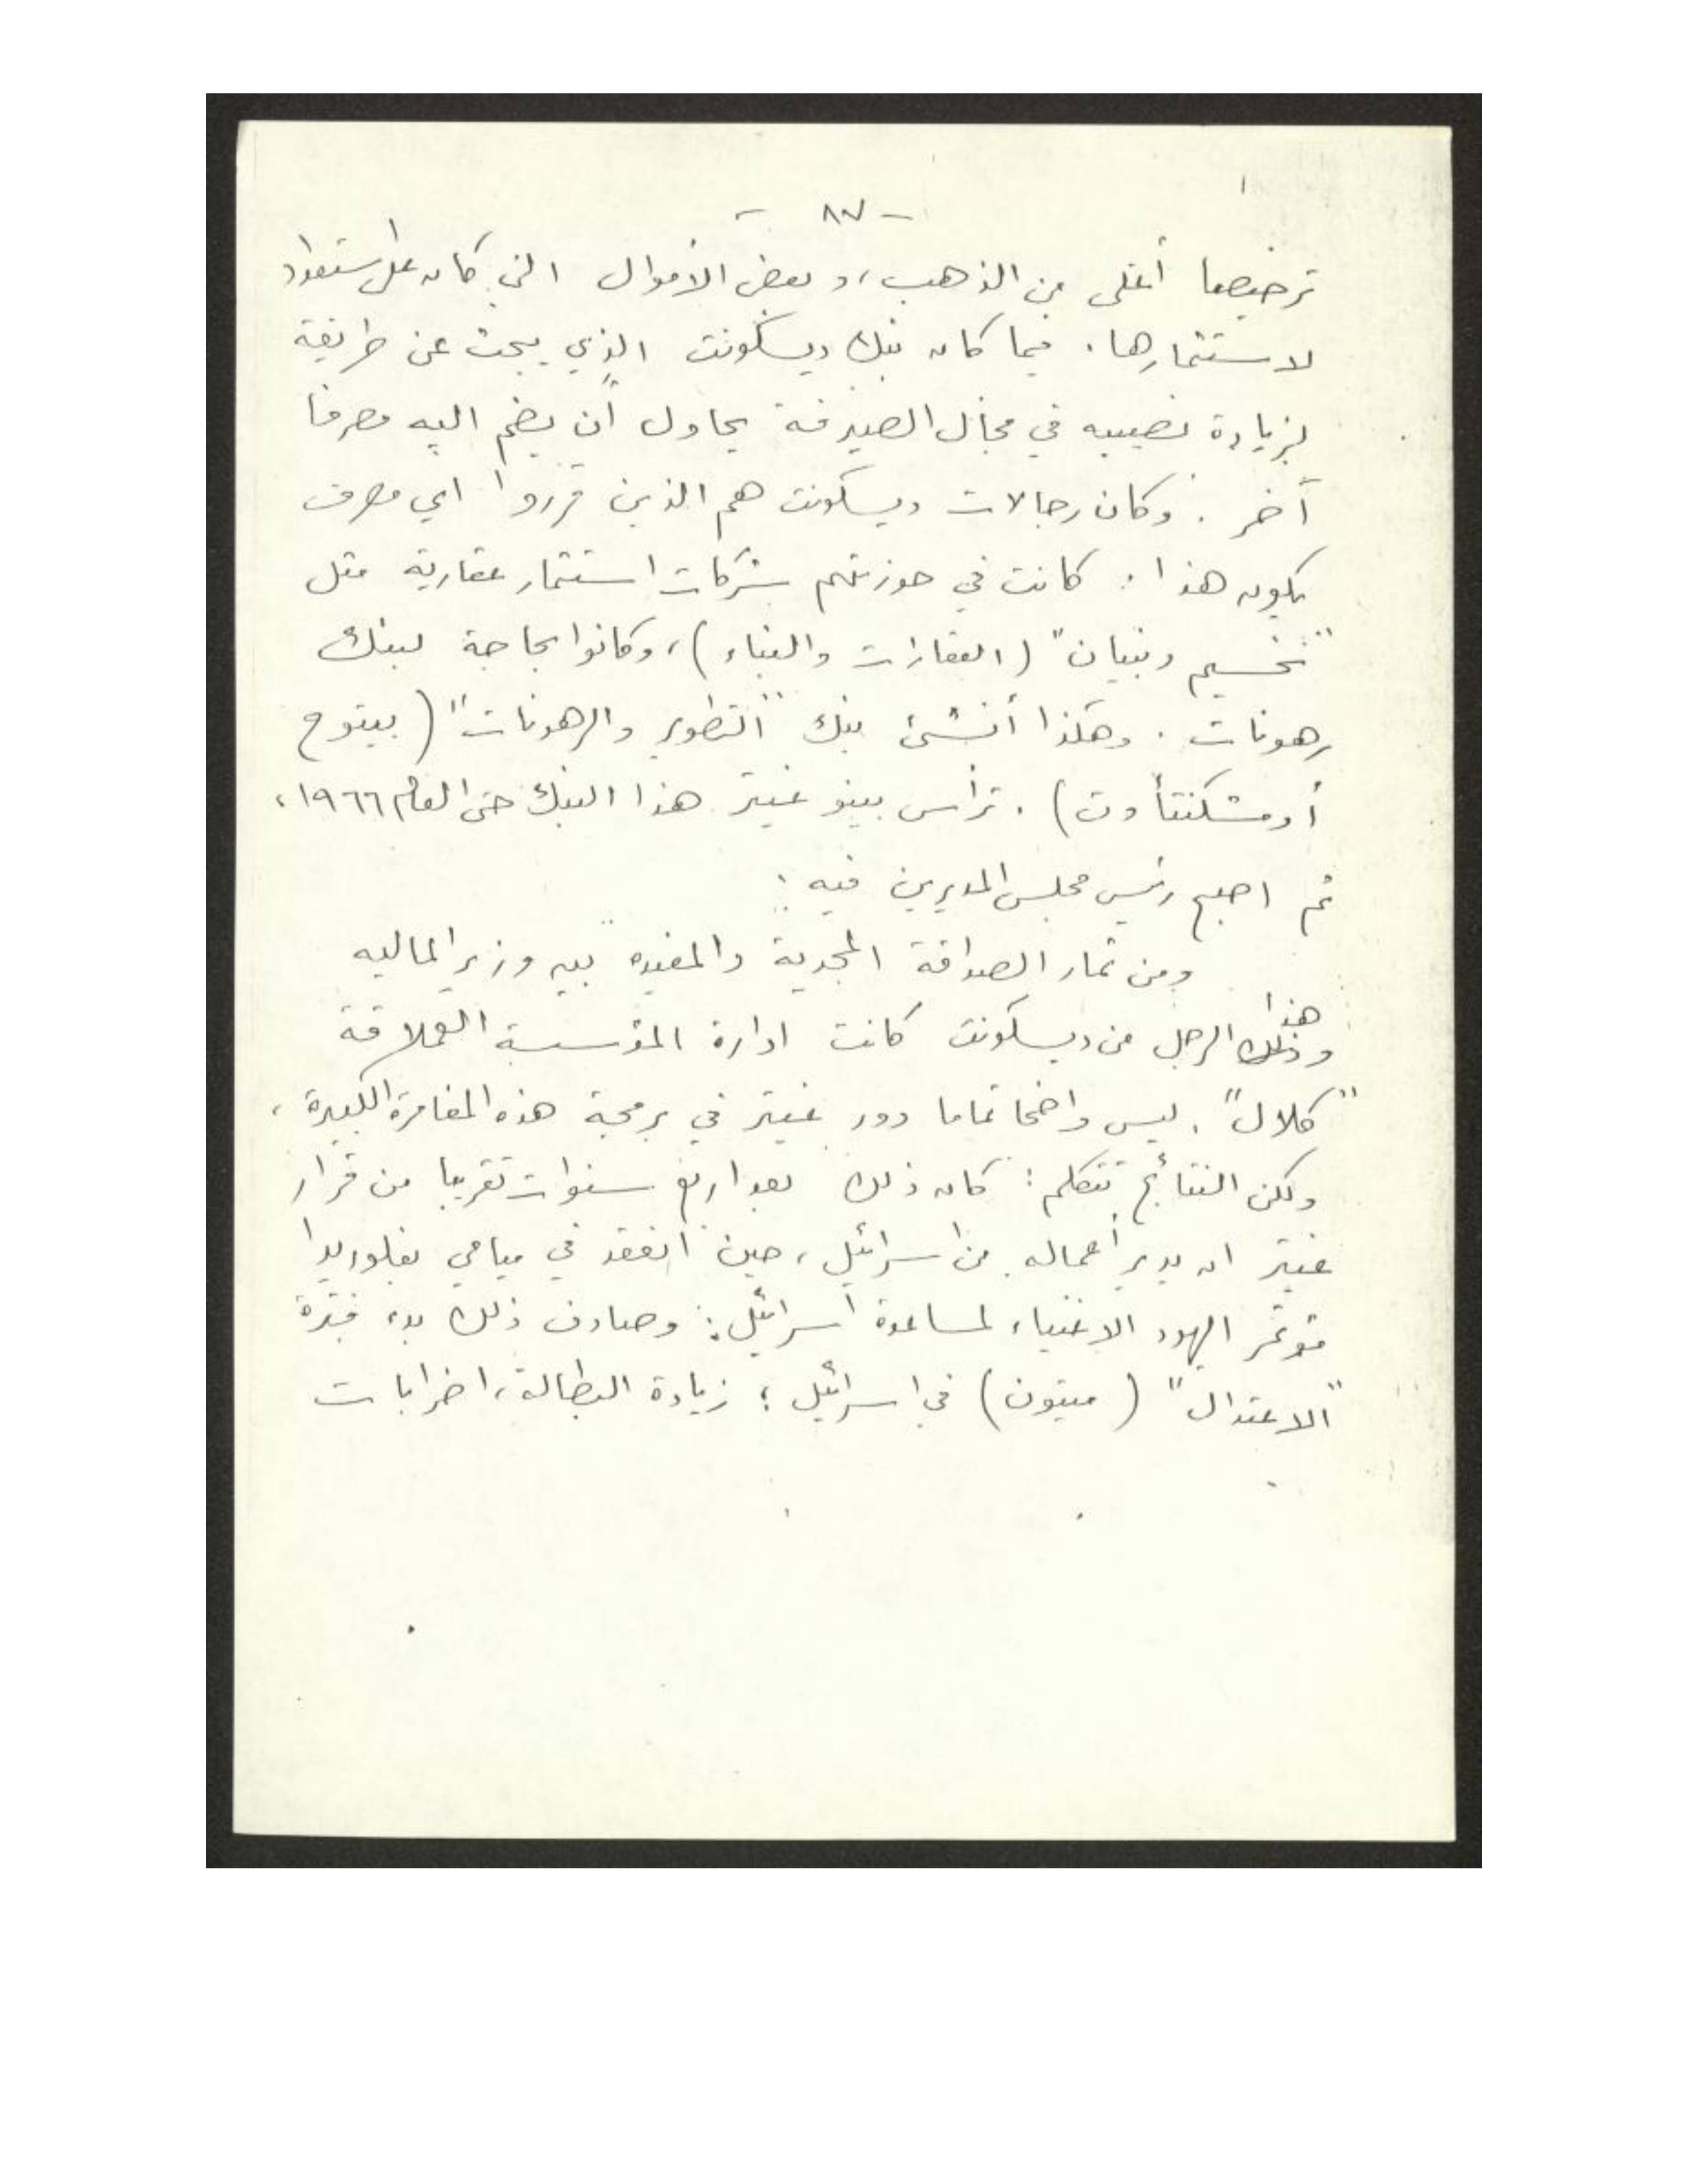 - ٨٧ -
ترخيصا أغلى من الذهب، وبعض الأموال التي كان على استعداد
لاستثمارها. فيما كان بنك ديسكونت الذي يبحث عن طريقة
لزيادة نصيبه في مجال الصيرفة يحاول أن يضم اليه مصرفا
آخر. وكان رجالات ديسكونت هم الذين قرروا اي مصرف
يكون هذا: كانت في حوزتهم شركات استثمار عقارية مثل
"نخسيم وبنيان" (العقارات والبناء)، وكانوا بحاجة لبنك
رهونات. وهكذا أنشئ بنك "التطوير والرهونات" (بيتوح
أومشكنتأوت). ترأس بينو غيتر هذا البنك حتى العام ١٩٦٦،
ثم اصبح رئيس مجلس المديرين فيه.
ومن ثمار الصداقة المجدية والمفيدة بين وزير الماليه
هذا
وذلك الرجل من ديسكونت كانت ادارة المؤسسة العملاقة
"كلال". ليس واضحا تماما دور غيتر في برمجة هذه المغامرة الكبيرة،
ولكن النتائج تتكلم: كان ذلك بعد اربع سنوات تقريبا من قرار
غيتر ان يدير أعماله من اسرائيل، حين انعقد في ميامي بفلوريدا
مؤتمر اليهود الاغنياء لمساعدة اسرائيل: وصادف ذلك بدء فترة
"الاعتدال" (ميتون) في اسرائيل؛ زيادة البطالة، اضرابات